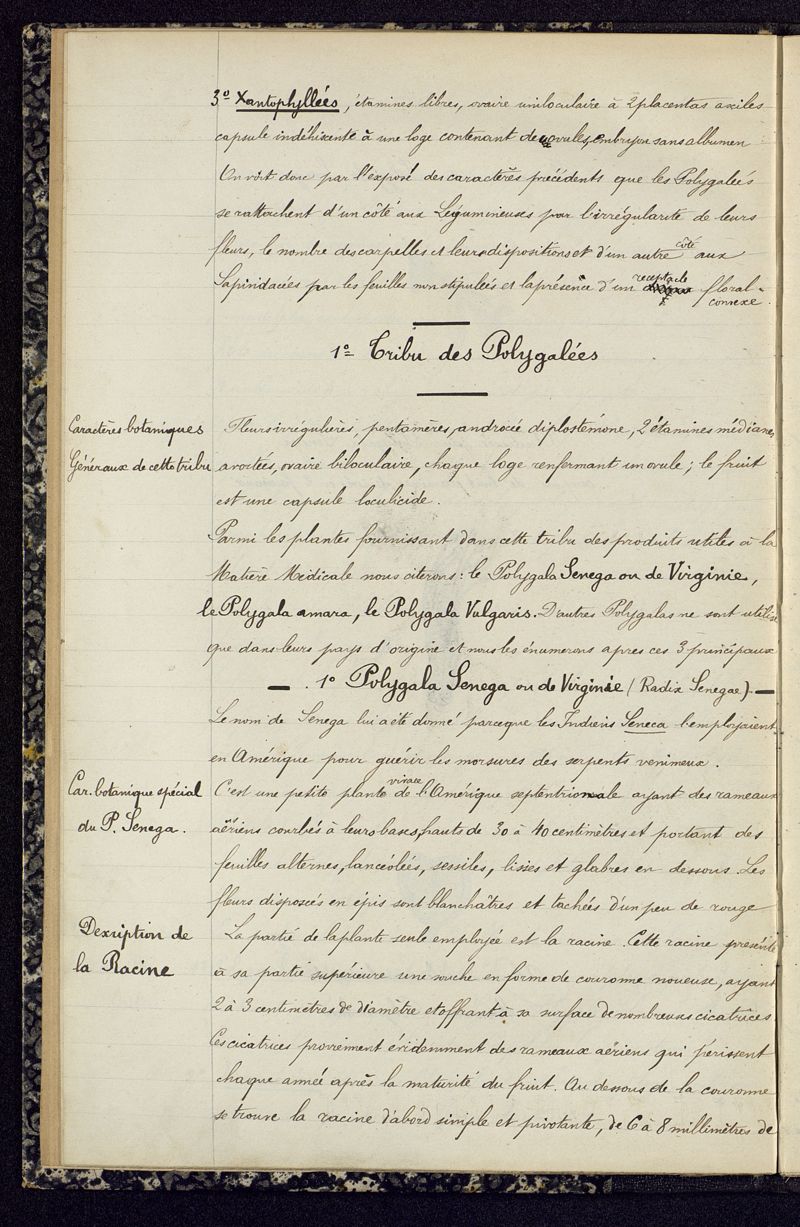 3º Xantophyllées, étamines libres, ovaire uniloculaire à 2 placentas axiles
capsule indéhiscente à une loge contenant des ovules, embryon sans albumen
On voit donc par l'exposé des caractères précédents que les Polygaleés
se rattachent d'un côté aux Légumineuses par l'irrégularité de leurs
fleurs, le nombre des carpelles et leurs dispositions et d'un autre côté aux
Sapindacées par les feuilles non stipulées et la présence d'un réceptacle floral
convexe.
1º Tribu des Polygalées
Caractères botaniques
Généraux de cette tribu
Fleurs irrégulières, pentamères, androcée diplostémone, 2 étamines médianes
avortées, ovaire biloculaire, chaque loge renfermant un ovule; le fruit
est une capsule loculicide.
Parmi les plantes fournissant dans cette tribu des produits utiles à la
Matière Médicale nous citerons: le Polygala Senega ou de Virginie,
le Polygala amara, le Polygala Vulgaris. D'autres Polygalas ne sont utilisés
que dans leurs pays d'origine et nous les énumerons apres ces 3 principaux
1º Polygala Senega ou de Virginie (Radix Senegae)
Le nom de Senega lui a été donné parceque les Indiens Seneca l'employaient
en Amérique pour guérir les morsures des serpents venimeux.
Car. botanique spécial
du P. Senega.
C'est une petite plante vivace de l'Amérique septentrionale ayant des rameaux
aériens courbés à leurs bases, hauts de 30 à 40 centimètres et portant des
feuilles alternes, lancéolées, sessiles, lisses et glabres en dessous. Les
fleurs disposées en épis sont blanchâtres et tachées d'un peu de rouge
Description de
la Racine
La partie de la plante seule employée est la racine. Cette racine présente
à sa partie supérieure une souche en forme de couronne noueuse, ayant
2 à 3 centimètres de diamètre et offrant à sa surface de nombreuses cicatrices
Ces cicatrices proviennent évidemment des rameaux aériens qui périssent
chaque année après la maturité du fruit. Au dessous de la couronne
se trouve la racine d'abord simple et pivotante, de 6 à 8 millimètres de